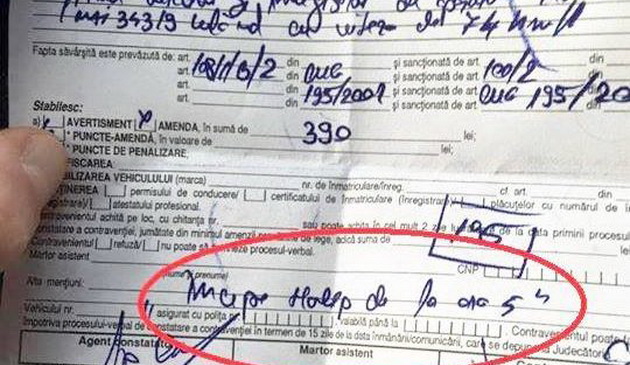 343/9 cu viteza de 74 km/h
Fapta săvârșită este prevăzută de: art. 108/1/B/2 din OUG și sancționată de art. 100/2 din
art. din 195/2002 și sancționată de art. OUG 195/20
art. din și sancționată de art.
Stabilesc:
a) AVERTISMENT AMENDA, în sumă de 390 lei;
PUNCTE-AMENDĂ, în valoare de lei;
PUNCTE DE PENALIZARE,
FISCAREA:
BILIZAREA VEHICULULUI (marca) nr. de înmatriculare/înreg. cf art. din
ȚINEREA permisului de conducere/ certificatului de înmatriculare (înregistrare) plăcuțelor cu numărul de în
atestatului profesional.
achită pe loc, cu chitanța nr. sau poate achita în cel mult 2 zile de la data primirii procesul
contravenției, jumătate din minimul amenzii de lege, adică suma de 195
Contravenientul refuză/ nu poate să procesul-verbal.
Martor asistent (nume și prenume) CNP
Alte mențiuni: "Începe Halep de la ora 5"
Vehiculul nr. asigurat cu polița nr. valabilă până la Contravenientul poate f
împotriva procesului-verbal de constatare a contravenției în termen de 15 zile de la data înmânării/comunicării, care se depune Judecătoria
Agent constatator Martor asistent